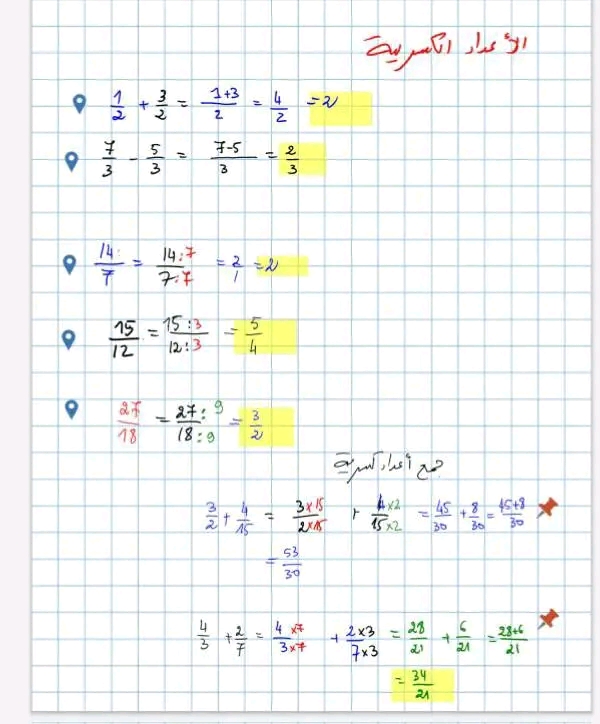 الأعداد الكسرية
1/2 + 3/2 = (1+3)/2 = 4/2 = 2
7/3 - 5/3 = (7-5)/3 = 2/3
14/7 = (14:7)/(7:7) = 2/1 = 2
15/12 = (15:3)/(12:3) = 5/4
27/18 = (27:9)/(18:9) = 3/2
جمع أعداد كسرية
3/2 + 4/15 = (3×15)/(2×15) + (4×2)/(15×2) = 45/30 + 8/30 = (45+8)/30
= 53/30
4/3 + 2/7 = (4×7)/(3×7) + (2×3)/(7×3) = 28/21 + 6/21 = (28+6)/21
= 34/21